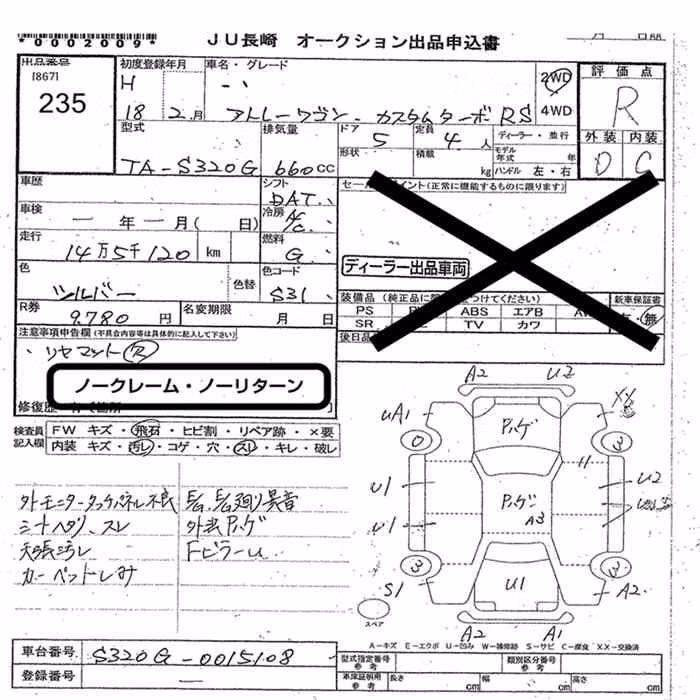 *0002009* JU長崎 オークション出品申込書
出品番号 初度登録年月 車名・グレード 2WD 評価点
[867] H
235 18 2月 アトレーワゴン・カスタムターボRS 4WD R
型式 排気量 ドア 5 定員 4人 ディーラー・並行 外装 内装
形状 積載 kg モデル年式 年
TA-S320G 660cc ハンドル 左・右 D C
車歴 シフト DAT セールスポイント(正常に機能するものに限ります)
車検 一年一月( 日) 冷房 A/C
走行 14万5千120 km 燃料 G ディーラー出品車両
色 シルバー 色替 色コード S31
装備品(純正品に つけてください) 新車保証書
R券 9.780円 名変期限 月 日 PS ABS エアB 有・無
SR TV カワ
注意事項申告欄(不具合内容等は具体的に記入して下さい) 後日品
・リヤマット欠
ノークレーム・ノーリターン
修復歴
検査員記入欄 FW キズ・飛石・ヒビ割・リペア跡・×要
内装 キズ・汚レ・コゲ・穴・スレ・キレ・破レ
外モニタータッチパネル不良
シートヘタリ、スレ 外装Pハゲ
天張汚レ FピラーU
カーペットしみ
A2 U2
uA1 Pハゲ XX
0 3
U1 Pハゲ U2
U1 A3
3 3
S1 U1 A2
スペア A2 A1
A-キズ E-エクボ U-凹み W-補修跡 S-サビ C-腐食 XX-交換済
車台番号 S320G-0015108 型式指定番号 参考 類別区分番号 参考
登録番号 — 車庫証明用 参考 長さ cm 幅 cm 高さ cm